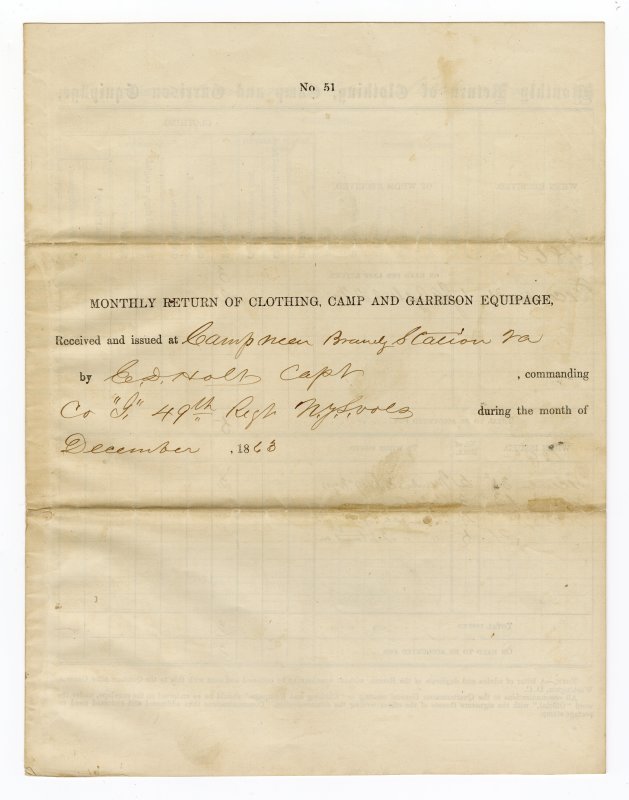 No 51
MONTHLY RETURN OF CLOTHING, CAMP AND GARRISON EQUIPAGE,
Received and issued at Camp near Brandy Station Va
by E.D. Holt Capt , commanding
Co "I," 49th Regt N.Y.S.vols during the month of
December , 1863